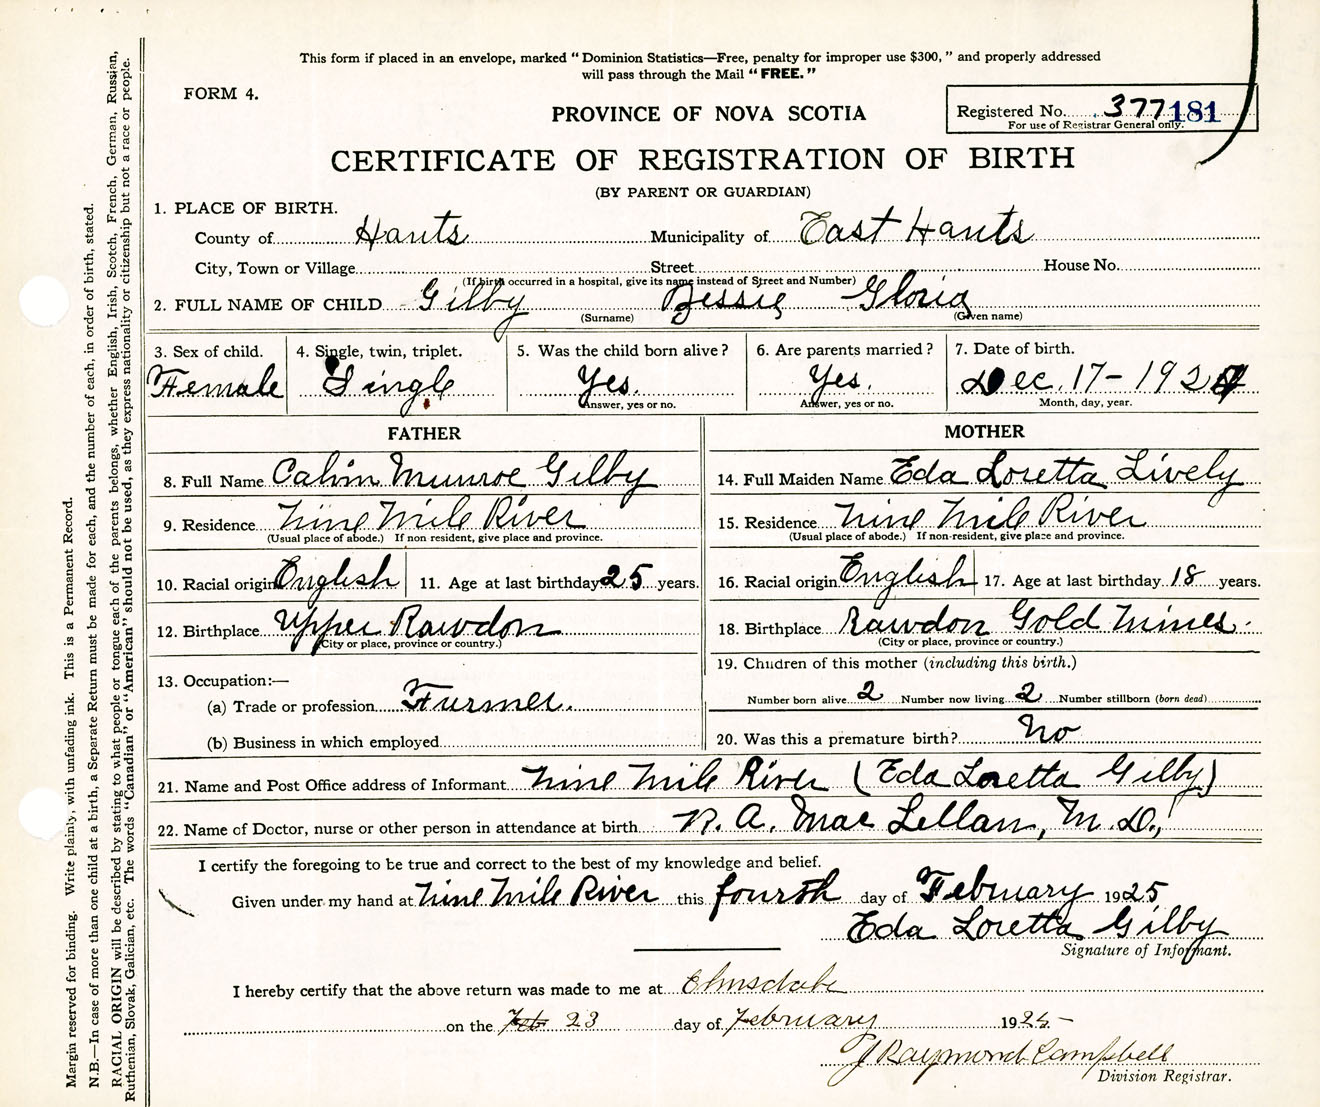 This form if placed in an envelope, marked "Dominion Statistics—Free, penalty for improper use $300," and properly addressed
will pass through the Mail "FREE."
FORM 4.
PROVINCE OF NOVA SCOTIA
Registered No. 377181
For use of Registrar General only.
CERTIFICATE OF REGISTRATION OF BIRTH
(BY PARENT OR GUARDIAN)
1. PLACE OF BIRTH.
County of Hants Municipality of East Hants
City, Town or Village Street House No.
(If birth occurred in a hospital, give its name instead of Street and Number)
2. FULL NAME OF CHILD Gilby Bessie Gloria
(Surname) (Given name)
3. Sex of child. 4. Single, twin, triplet. 5. Was the child born alive? 6. Are parents married? 7. Date of birth.
Female Single Yes. Yes. Dec. 17 - 1924
Answer, yes or no. Answer, yes or no. Month, day, year.
FATHER MOTHER
8. Full Name Calvin Munroe Gilby 14. Full Maiden Name Eda Loretta Lively
9. Residence Nine Mile River 15. Residence Nine Mile River
(Usual place of abode.) If non resident, give place and province. (Usual place of abode.) If non-resident, give place and province.
10. Racial origin English 11. Age at last birthday 25 years. 16. Racial origin English 17. Age at last birthday 18 years.
12. Birthplace Upper Rawdon 18. Birthplace Rawdon Gold Mines.
(City or place, province or country.) (City or place, province or country.)
19. Children of this mother (including this birth.)
13. Occupation:—
Number born alive 2 Number now living 2 Number stillborn (born dead)
(a) Trade or profession Farmer.
(b) Business in which employed 20. Was this a premature birth? No
21. Name and Post Office address of Informant Nine Mile River (Eda Loretta Gilby)
22. Name of Doctor, nurse or other person in attendance at birth R. A. MacLellan, M.D.,
I certify the foregoing to be true and correct to the best of my knowledge and belief.
Given under my hand at Nine Mile River this fourth day of February 1925
Eda Loretta Gilby
Signature of Informant.
I hereby certify that the above return was made to me at Elmsdale
on the Feb 23 day of February 1925
J Raymond Campbell
Division Registrar.
Margin reserved for binding. Write plainly, with unfading ink. This is a Permanent Record.
N.B.—In case of more than one child at a birth, a Separate Return must be made for each, and the number of each, in order of birth, stated.
RACIAL ORIGIN will be described by stating to what people or tongue each of the parents belongs, whether English, Irish, Scotch, French, German, Russian,
Ruthenian, Slovak, Galician, etc. The words "Canadian" or "American" should not be used, as they express nationality or citizenship but not a race or people.